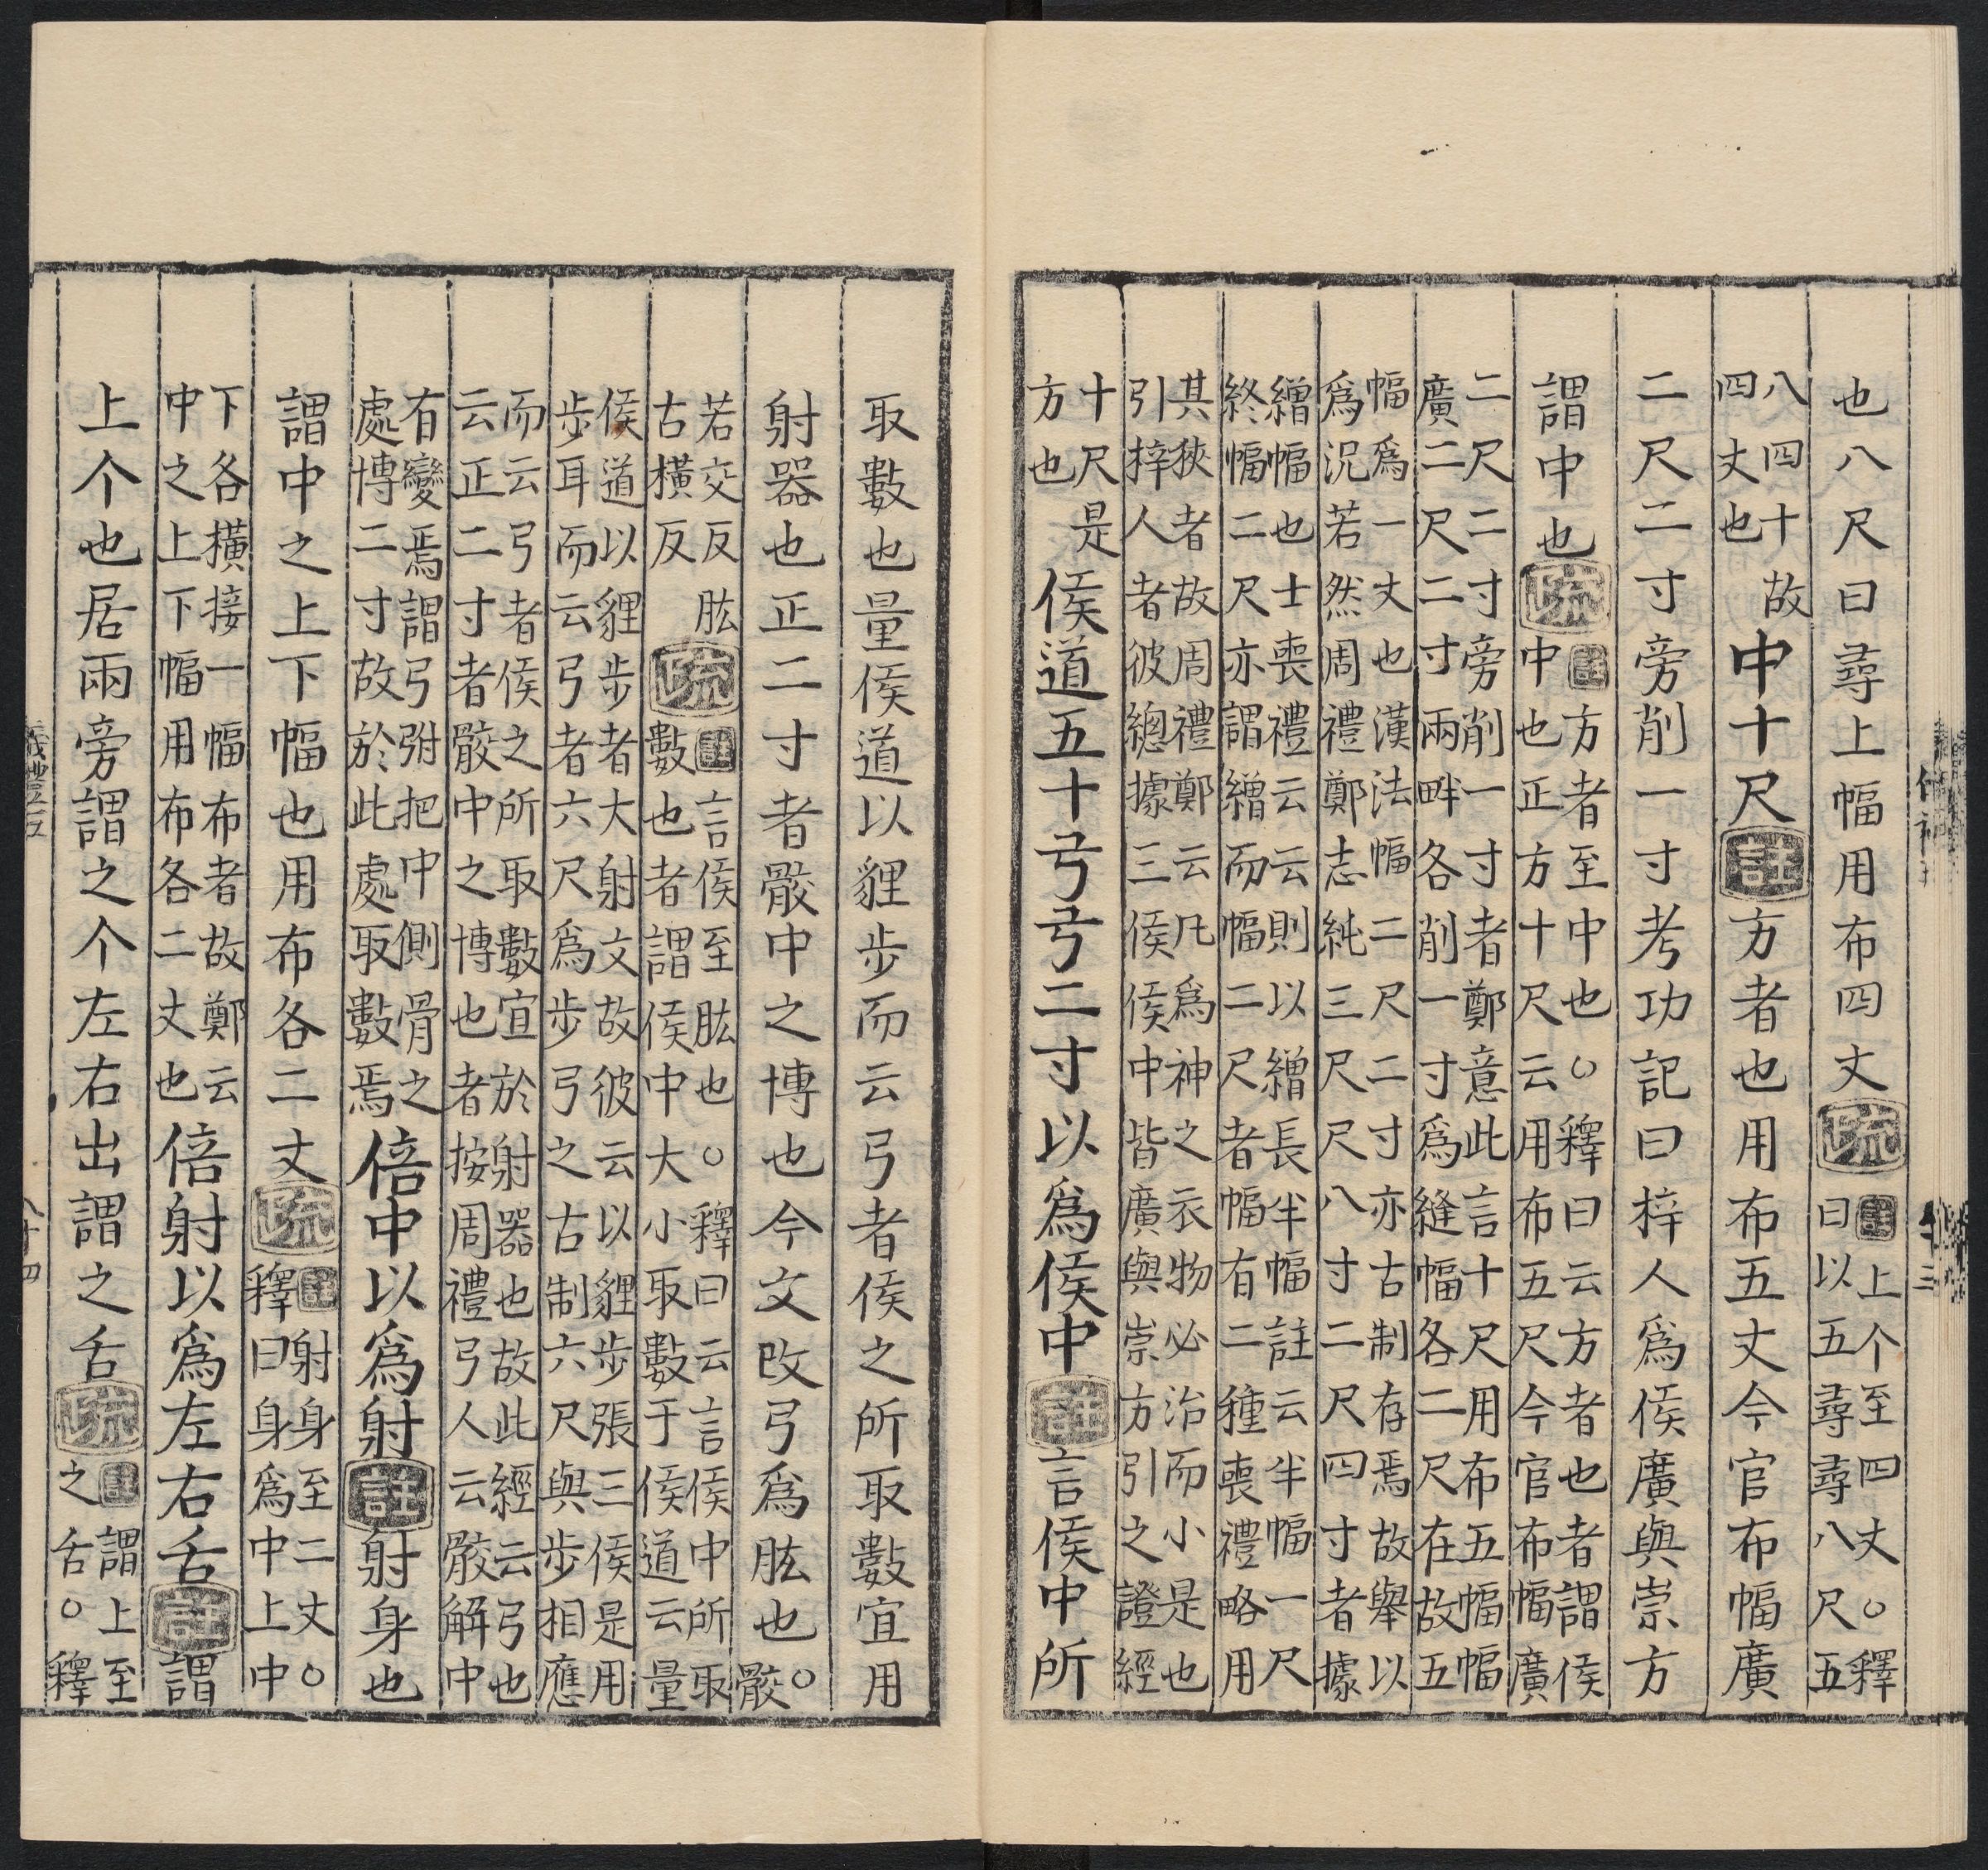 也八尺曰尋上幅用布四丈疏註上个至四丈。釋
曰以五尋尋八尺五
八四十故
四丈也
中十尺註方者也用布五丈今官布幅廣
二尺二寸旁削一寸考功記曰梓人爲侯廣與崇方
謂中也疏註方者至中也。釋曰云方者也者謂侯
中也正方十尺云用布五尺今官布幅廣
二尺二寸旁削一寸者鄭意此言十尺用布五幅幅
廣二尺二寸兩畔各削一寸爲縫幅各二尺在故五
幅爲一丈也漢法幅二尺二寸亦古制存焉故舉以
爲況若然周禮鄭志純三尺尺八寸二尺四寸者據
繒幅也士喪禮云云則以繒長半幅註云半幅一尺
終幅二尺亦謂繒而幅二尺者幅有二種喪禮略用
其狹者故周禮鄭云凡爲神之衣物必治而小是也
引梓人者彼總據三侯侯中皆廣與崇方引之證經
十尺是
方也
侯道五十弓弓二寸以爲侯中註言侯中所
取數也量侯道以貍步而云弓者侯之所取數宜用
射器也正二寸者骹中之博也今文改弓爲肱也。骹
若交反肱
古橫反
疏註言侯至肱也。釋曰云言侯中所取
數也者謂侯中大小取數于侯道云量
侯道以貍步者大射文故彼云以貍步張三侯是用
步耳而云弓者六尺爲步步弓之古制六尺與步相應
而云弓者侯之所取數宜於射器也故此經云弓也
云正二寸者骹中之博也者按周禮弓人云骹解中
有變焉謂弓弣把中側骨之
處博二寸故於此處取數焉
倍中以爲射註射身也
謂中之上下幅也用布各二丈疏註射身至二丈。
釋曰身爲中上中
下各橫接一幅布者故鄭云
中之上下幅用布各二丈也
倍射以爲左右舌註謂
上个也居兩旁謂之个左右出謂之舌疏註謂上至
之舌。釋
八十四